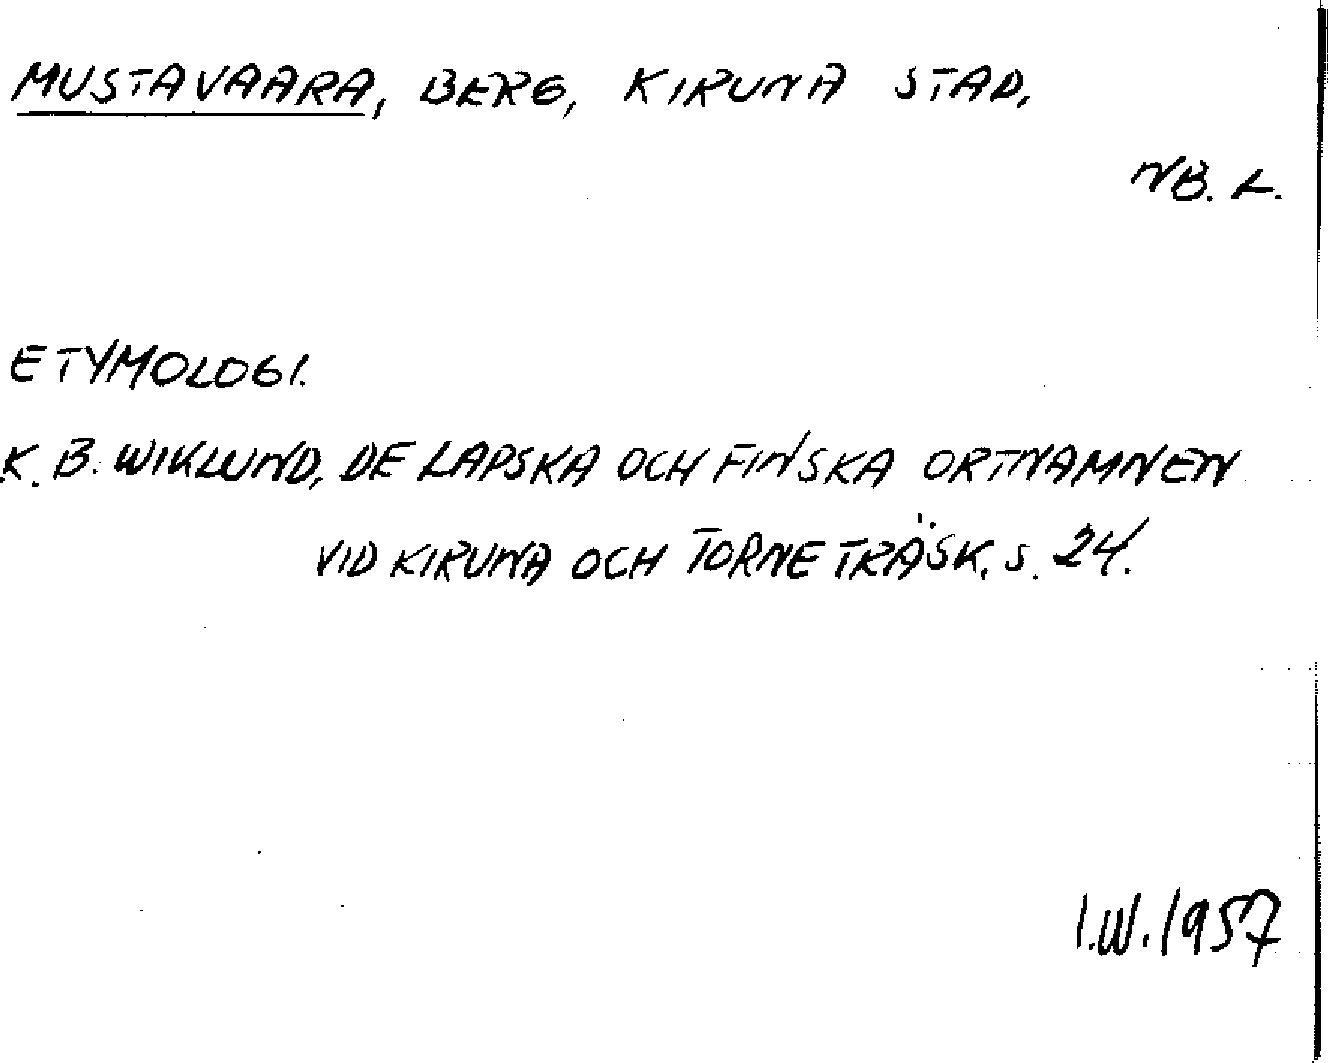 MUSTAVAARA, BERG, KIRUNA STAD,
NB. L.
ETYMOLOGI.
K. B. WIKLUND, DE LAPSKA OCH FINSKA ORTNAMNEN
VID KIRUNA OCH TORNE TRÄSK, S. 24.
I.W. 1957